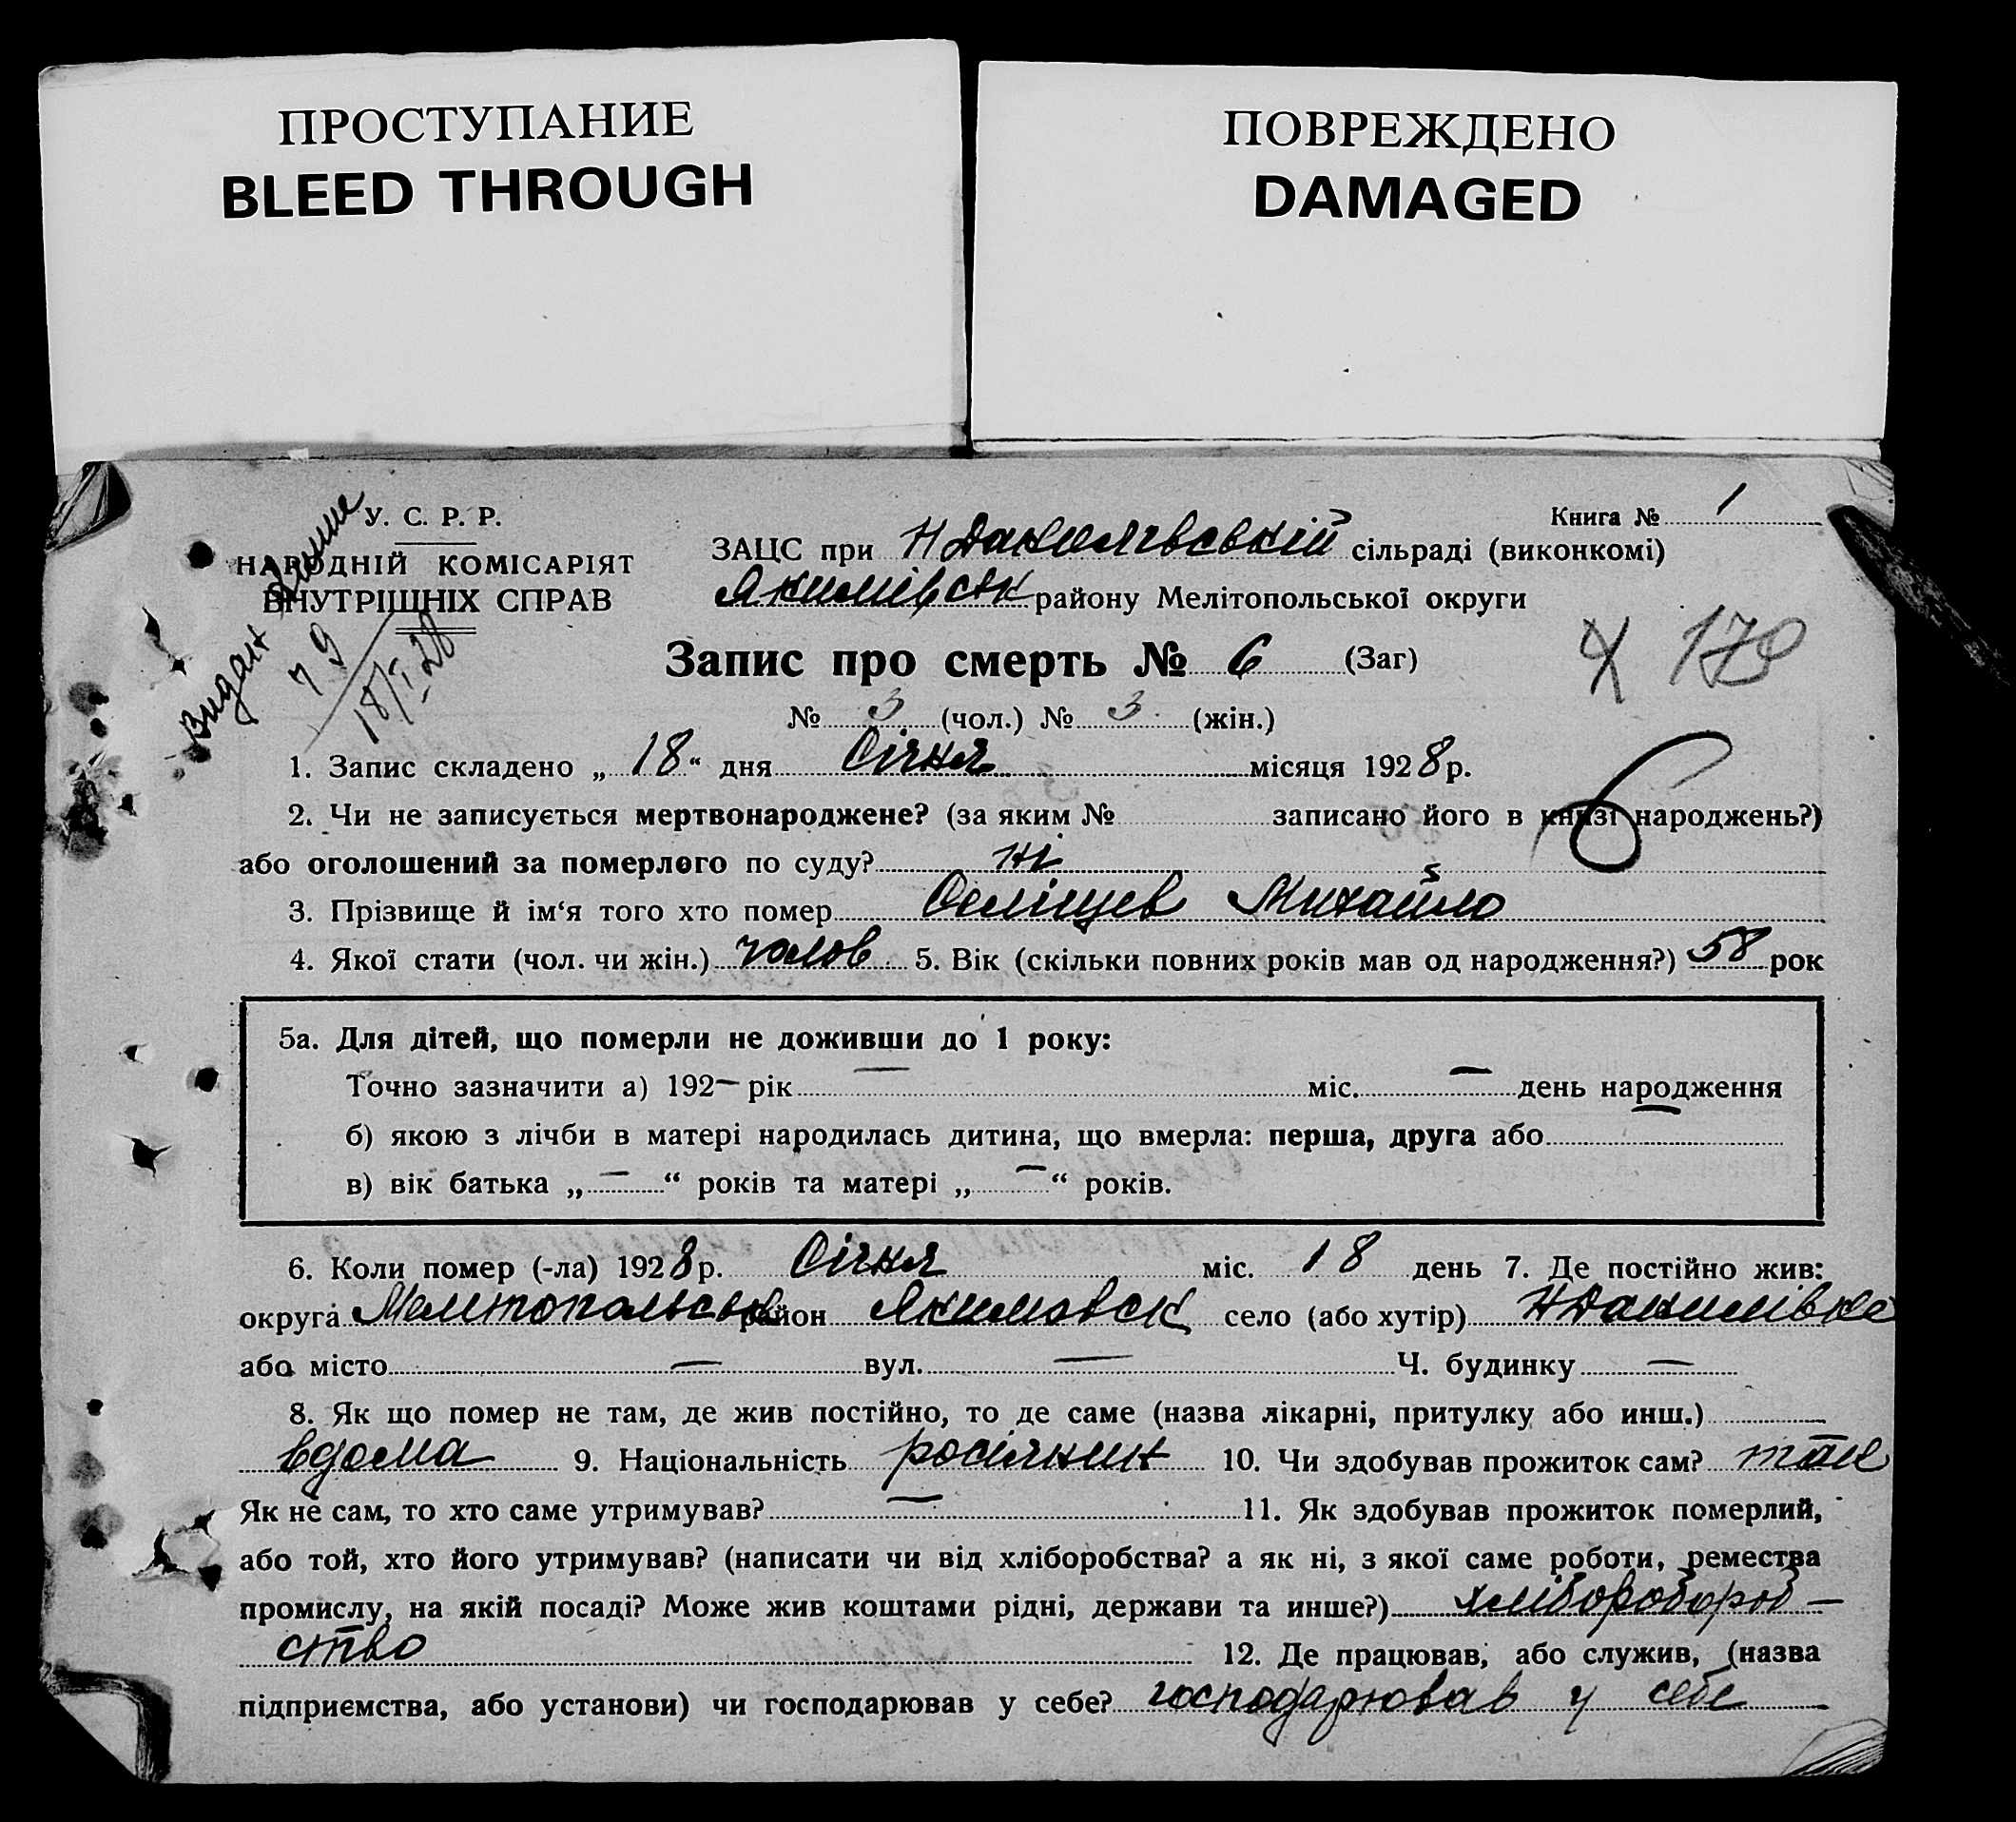 ПРОСТУПАНИЕ
BLEED THROUGH
ПОВРЕЖДЕНО
DAMAGED
У. С. Р. Р.
НАРОДНІЙ КОМІСАРІЯТ
ВНУТРІШНІХ СПРАВ
Видан
79
18/I 28
Книга № 1
ЗАЦС при Н Данилівській сільраді (виконкомі)
Якимівськ району Мелітопольської округи
Запис про смерть № 6 (Заг)
179
№ 3 (чол.) № 3 (жін.)
1. Запис складено „ 18 “ дня Січня місяця 1928 р.
6
2. Чи не записується мертвонароджене? (за яким № записано його в книзі народжень?)
або оголошений за померлого по суду? ні
3. Прізвище й ім‘я того хто помер Селіщев Михайло
4. Якої стати (чол. чи жін.) чолов 5. Вік (скільки повних років мав од народження?) 58 рок
5а. Для дітей, що померли не доживши до 1 року:
Точно зазначити а) 192— рік — міс. — день народження
б) якою з лічби в матері народилась дитина, що вмерла: перша, друга або —
в) вік батька „ — “ років та матері „ — “ років.
6. Коли помер (-ла) 1928 р. Січня міс. 18 день 7. Де постійно жив:
округа Мелітопольськ район Якимовск село (або хутір) Н Данилівка
або місто — вул. — Ч. будинку —
8. Як що помер не там, де жив постійно, то де саме (назва лікарні, притулку або инш.)
вдома 9. Національність росіянин 10. Чи здобував прожиток сам? так
Як не сам, то хто саме утримував? — 11. Як здобував прожиток померлий,
або той, хто його утримував? (написати чи від хліборобства? а як ні, з якої саме роботи, ремества
промислу, на якій посаді? Може жив коштами рідні, держави та инше?) хлібороброб —
ство 12. Де працював, або служив, (назва
підприємства, або установи) чи господарював у себе? господарював у себе